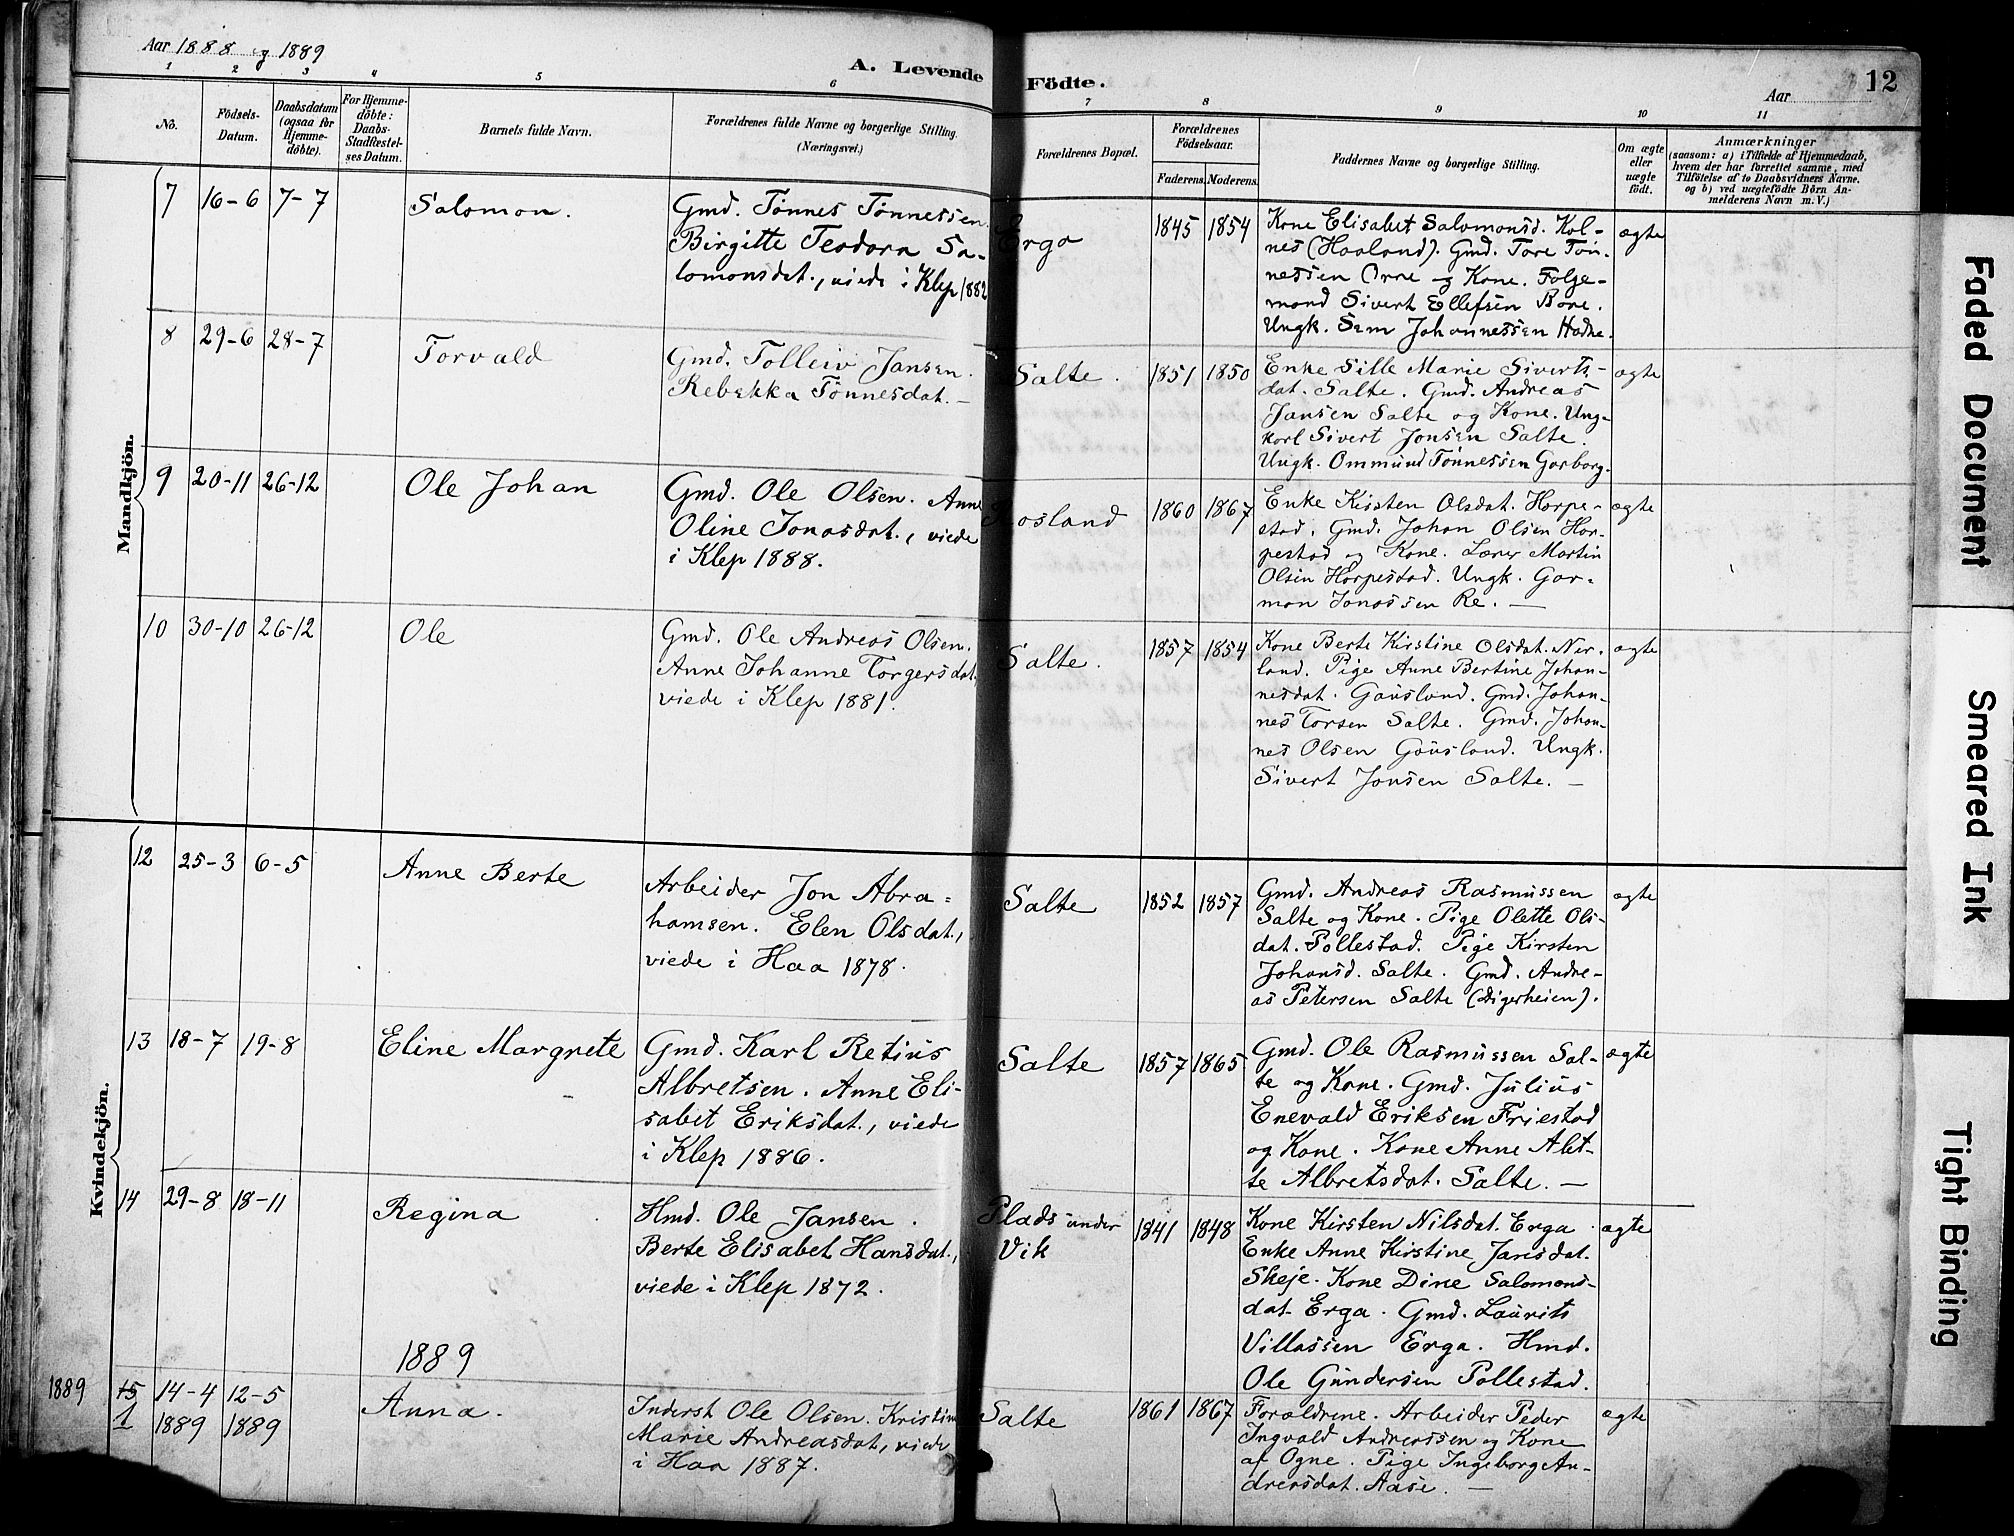 Aar 1888 og 1889
A. Levende Födte.
Aar
12
1 2 3 4 5 6 7 8 9 10 11
No.
Födsels-Datum.
Daabsdatum (ogsaa for Hjemme-döbte).
For Hjemme-döbte: Daabs-Stadfæstel-ses Datum.
Barnets fulde Navn.
Forældrenes fulde Navne og borgerlige Stilling. (Næringsvei.)
Forældrenes Bopæl.
Forældrenes Födselsaar.
Faderens. Moderens.
Faddernes Navne og borgerlige Stilling.
Om ægte eller uægte födt.
Anmærkninger
(saasom: a) i Tilfælde af Hjemmedaab,
hvem der har forrettet samme, med
Tilföielse af to Daabsvidners Navne,
og b) ved uægtefödte Börn An-
melderens Navn m. V.)
Mandkjön.
7 16-6 7-7 Salomon.
Gmd. Tönnes Tönnessen.
Birgitte Teodora Sa-
lomonsdat., viede i Klep 1882
Erga 1845 1854
Kone Elisabet Salomonsd. Kol-
nes (Haaland). Gmd. Tore Tön-
nessen Orre og Kone. Følge-
mand Sivert Ellefsen Bore.
Ungk. Sem Johannessen Hodne.
ægte
8 29-6 28-7 Torvald
Gmd. Tolleiv Jansen.
Rebekka Tönnesdat. —
Salte. 1851 1850
Enke Sille Marie Siverts-
dat. Salte. Gmd. Andreas
Jansen Salte og Kone. Ung-
karl Sivert Jonsen Salte.
Ungk. Ommund Tönnessen Garborg.
ægte
9 20-11 26-12 Ole Johan
Gmd. Ole Olsen. Anne
Oline Jonasdat., viede
i Klep 1888.
osland 1860 1867
Enke Kirsten Olsdat. Horpe-
stad. Gmd. Johan Olsen Hor-
pestad og Kone. Lærer Martin
Olsen Horpestad. Ungk. Gar-
man Jonassen Re. —
ægte
10 30-10 26-12 Ole
Gmd. Ole Andreas Olsen.
Anne Johanne Torgersdat.
viede i Klep 1881.
Salte. 1857 1854
Kone Berte Kirstine Olsdat. Ner-
land. Pige Anne Bertine Johan-
nesdat. Gausland. Gmd. Johan-
nes Torsen Salte. Gmd. Johan-
nes Olsen Gausland. Ungk.
Sivert Jonsen Salte. —
ægte
Kvindekjön.
12 25-3 6-5 Anne Berte
Arbeider Jon Abra-
hamsen. Elen Olsdat.,
viede i Haa 1878.
Salte 1852 1857
Gmd. Andreas Rasmussen
Salte og Kone. Pige Olette Ols-
dat. Pollestad. Pige Kirsten
Johansd. Salte. Gmd. Andre-
as Petersen Salte (Digerheien).
ægte
13 18-7 19-8 Eline Margrete
Gmd. Karl Retius
Albretsen. Anne Eli-
sabet Eriksdat., viede
i Klep 1886.
Salte 1857 1865
Gmd. Ole Rasmussen Sal-
te og Kone. Gmd. Julius
Enevald Eriksen Friestad
og Kone. Kone Anne Alet-
te Albretsdat. Salte. —
ægte
14 29-8 18-11 Regina
Hmd. Ole Jansen.
Berte Elisabet Hansdat.,
viede i Klep 1872.
Plads under
Vik
1841 1848
Kone Kirsten Nilsdat. Erga.
Enke Anne Kirstine Jansdat.
Skeje. Kone Dine Salomons-
dat. Erga. Gmd. Laurits
Villassen Erga. Hmd.
Ole Gundersen Pollestad.
ægte
1889
1889 15 14-4 12-5 Anna.
1 1889 1889
Inderst Ole Olsen. Kristine
Marie Andreasdat., viede
i Haa 1887.
Salte 1861 1867
Forældrene. Arbeider Peder
Ingvald Andreassen og Kone
af Ogne. Pige Ingeborg An-
dreasdat. Aase. —
ægte
Faded Document
Smeared Ink
Tight Binding